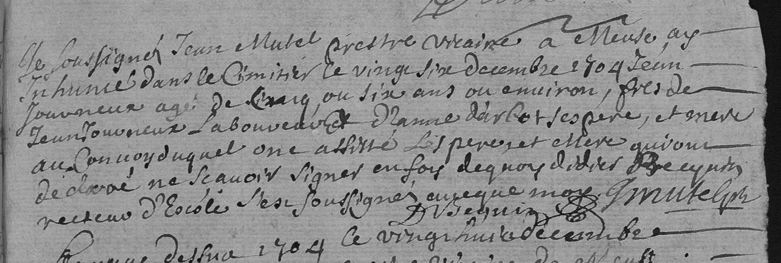 Je soussigné Jean Mutel prestre vicaire a Meuse ay
Inhumé dans le Cimitier le vingt six decembre 1704 Jean
Jouvneux agé de Cinq, ou six ans ou environ, fils de
Jean Jouvneux Laboureur et d'anne darbot ses pere, et mere
au Convoy duquel ont assisté Les pere et Mere qui ont
declaré ne scavoir signer en foy dequoy didier Becquin
recteur d'Escole s'est soussigné avecque moy JMutel ptr
DBequin
1704 Le vingt huit decembre